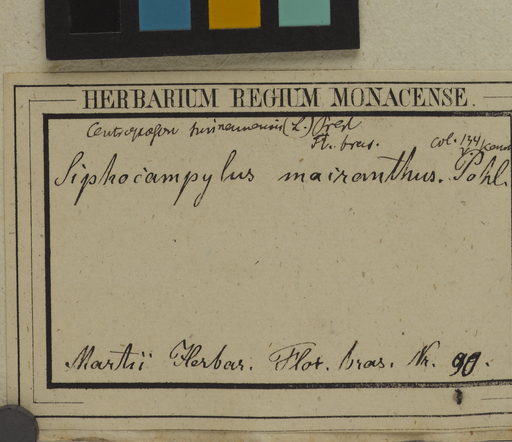 HERBARIUM REGIUM MONACENSE.
Centropogon surinamensis (L.) Presl
Fl. bras. col. 134
Siphocampylus macranthus. Pohl.
Martii Herbar. Flor. bras. Nr. 90.